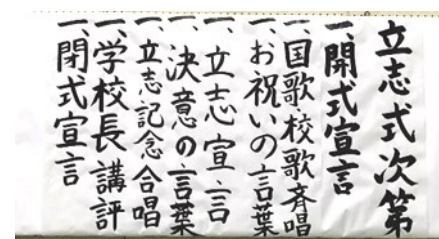 立志式次第
一、開式宣言
一、国歌校歌斉唱
一、お祝いの言葉
一、立志宣言
一、決意の言葉
一、立志記念合唱
一、学校長講評
一、閉式宣言